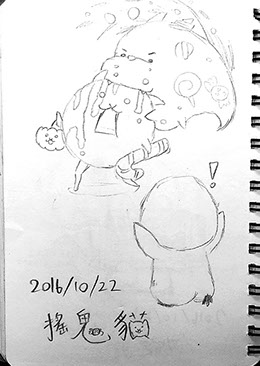 !
2016/10/22
搖鬼貓